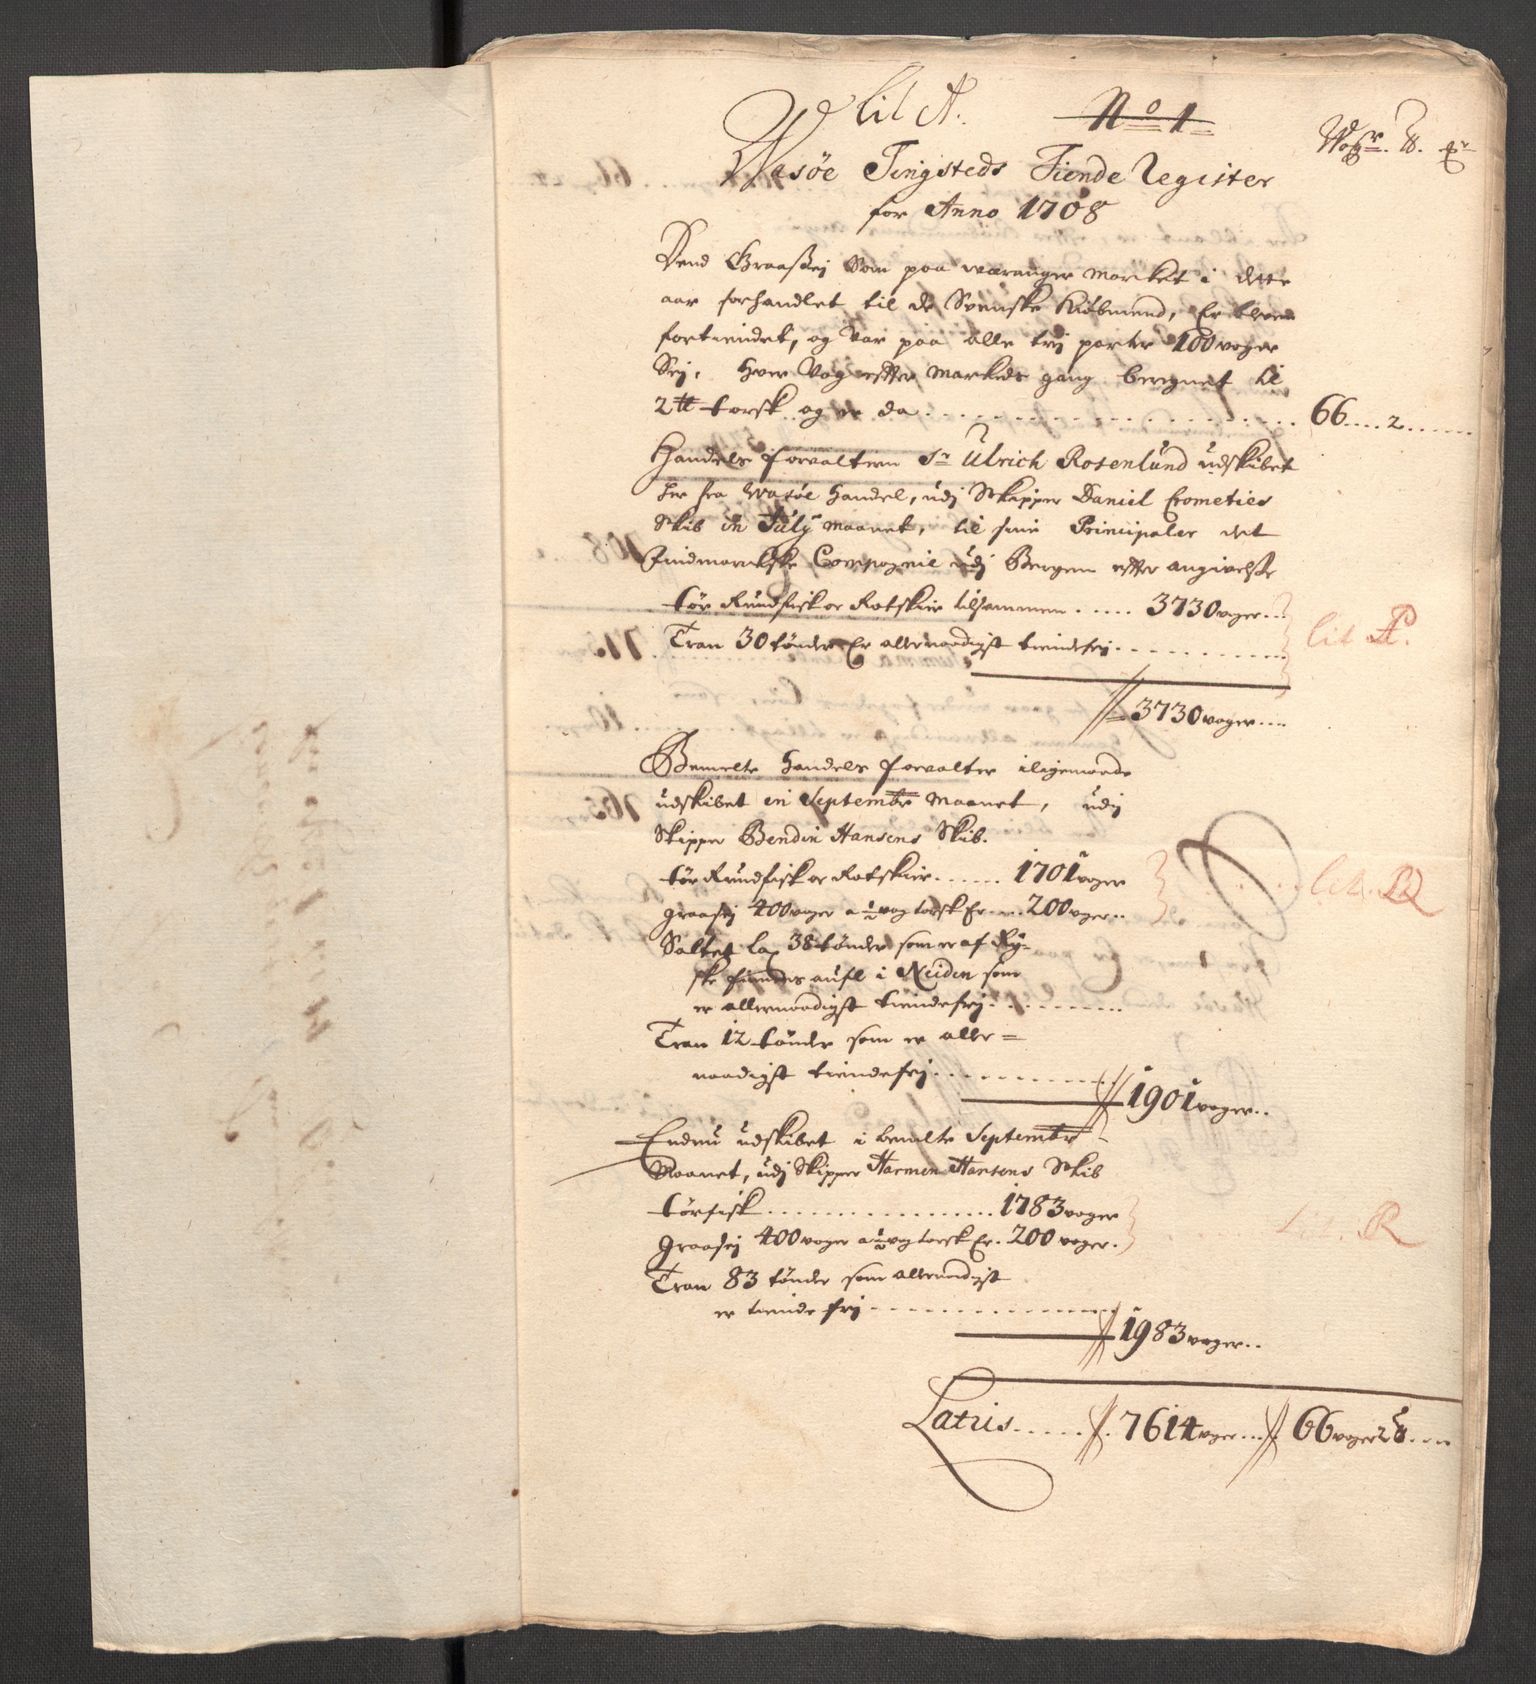 Lit A. N⁰ 1
Wogr. ℔. ℳr
Wasøe Tingsteds Tiende Register
for Anno 1708
Dend Graaseÿ Som paa waranger Market i dette
aar forhandlet til de Svenske Kiøbmend, Er bleven
fortiendet, og var paa alle trej parter 100 woger
Seÿ, Hver Vog effter Markeds gang beregnet til
2 ℔ torsk og er da . . . . . 66 . . . . 2 . . . . .
Handels forvalteren Sr Ulrich Rosenlund udskibet
her fra Wasøe Handel, udj Skipper Daniel Crometies
Skib in July Maanet, til sine Principaler det
Findmarckske Compagnie udj Bergen effter angivelse
tør Rundfisk og Rotskier tilsammen . . . . . 3730 woger . . . lit P.
Tran 30 tønder Er allernaadigst tiendefrj . . . . .
3730 woger . . . .
Bemelte Handels forvalter iligemaade
udskibet in Septembr Maanet, udj
Skipper Bendix Hansens Skib.
tør Rundfisk og Rotskier . . . . . . 1701 woger . . . . lit. Q
graaseÿ 400 woger a ½ wog torsk Er . . . 200 woger . .
Saltet lax 38 tønder som er af Ry-
ske i Neiden som
er allernaadigst tiendefrj . . . . .
Tran 12 tønder som er aller=
naadigst tiendefrj . . . . .
1901 woger . .
Endnu udskibet i bemelte Septembr
Maanet, udj Skipper Harmen Hansens Skib
tørfisk . . . . . 1783 woger . . . . Lit. R
Graaseÿ 400 woger a ½ wog torsk Er . 200 woger .
Tran 83 tønder som allernaadigst
er tiende frj . . . . .
1983 woger . .
Latus . . . . . 7614 woger . . . 66 woger 2 ℔ . . .